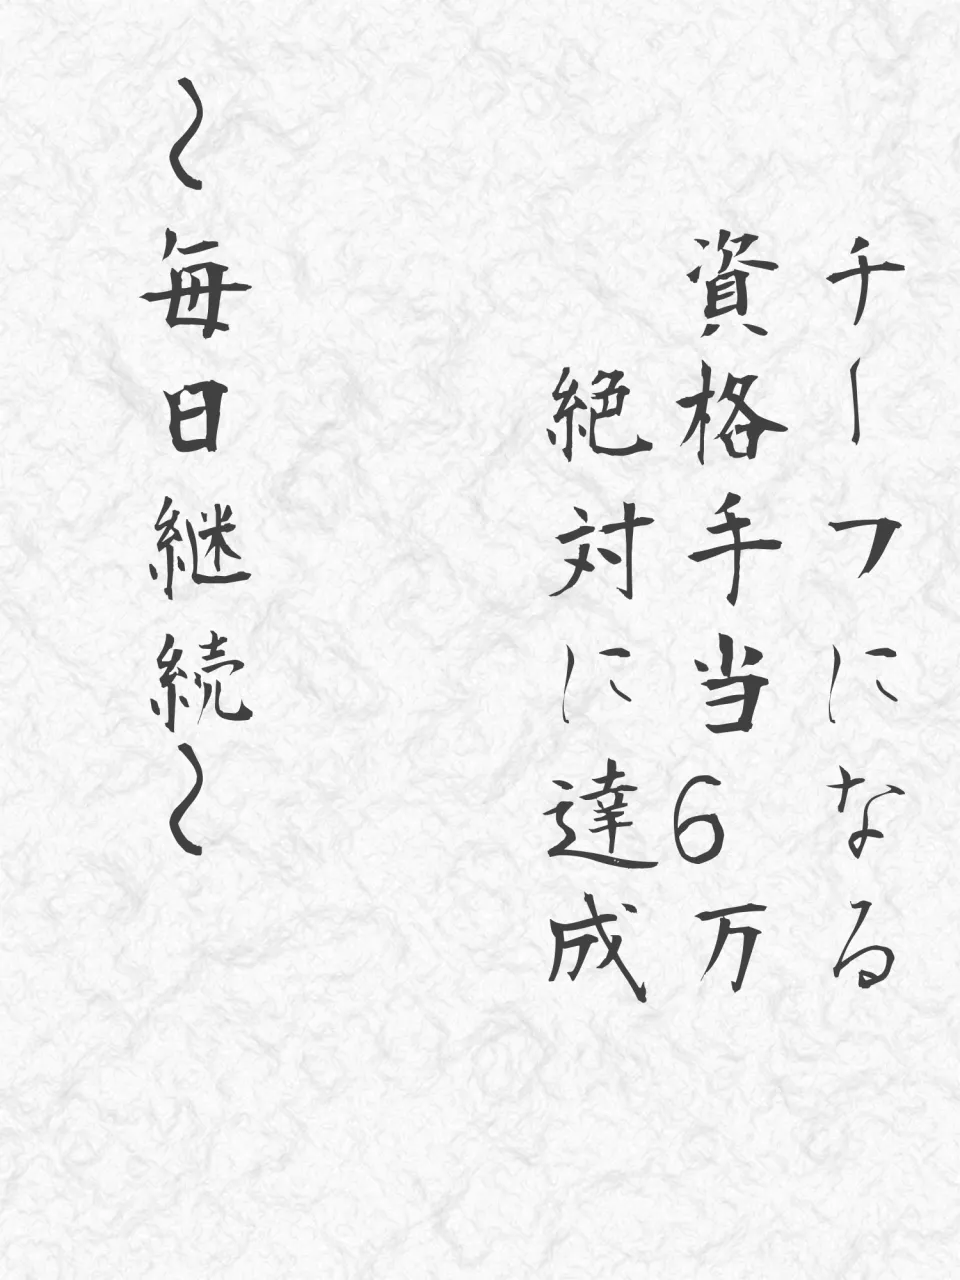 チーフになる
資格手当6万
絶対に達成
〜毎日継続〜